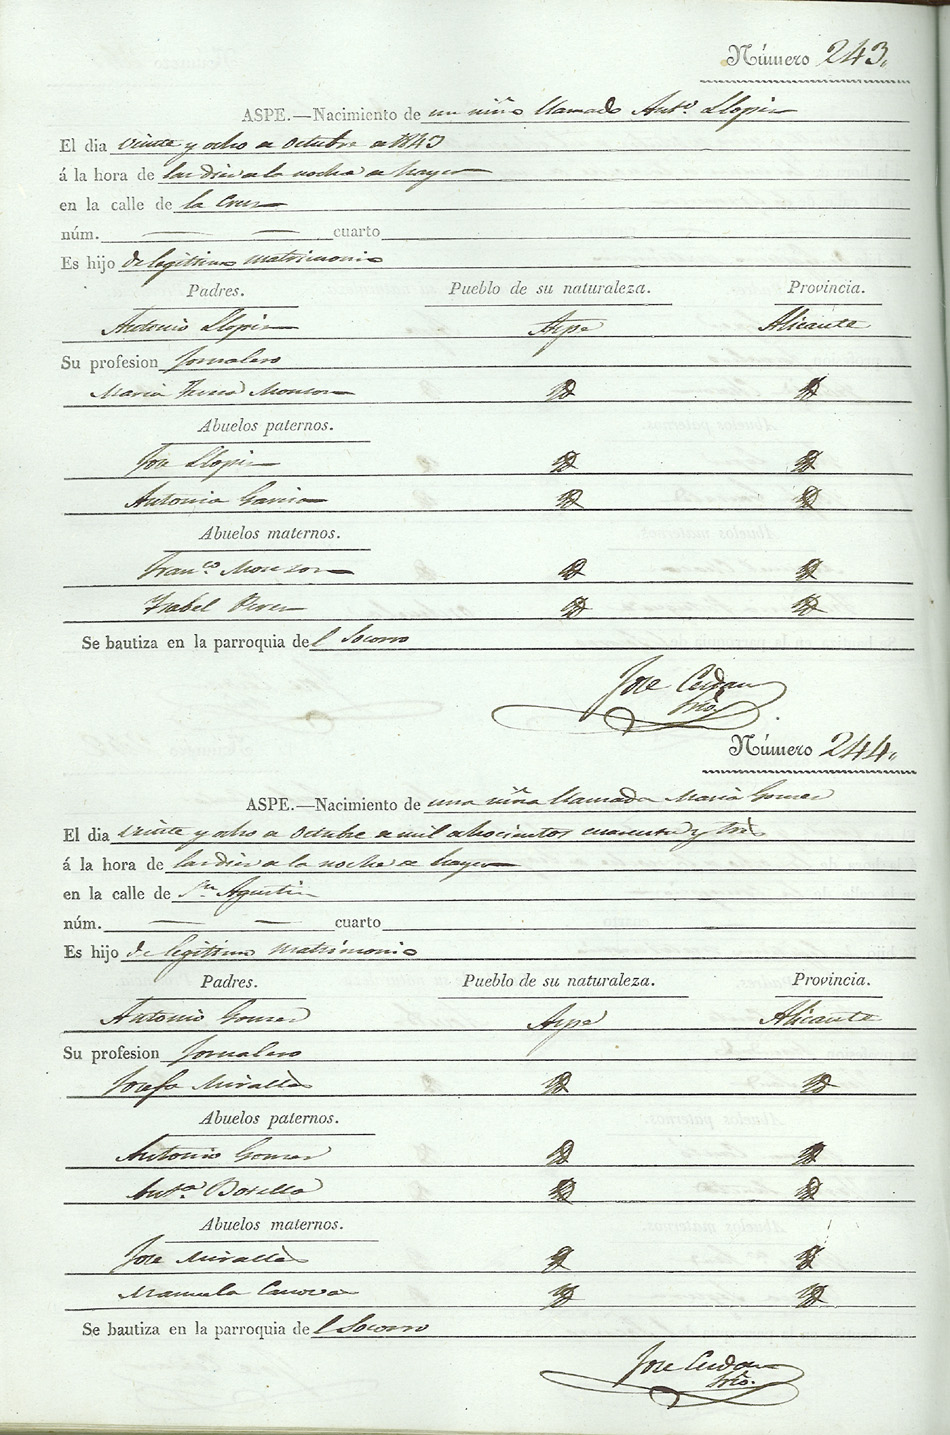 Número 243.
ASPE.—Nacimiento de un niño llamado Antº Llopis
El dia veinte y ocho de Octubre de 1843
á la hora de las diez de la noche de hayer
en la calle de la Cruz
núm. — — cuarto
Es hijo de legitimo matrimonio
Padres. Pueblo de su naturaleza. Provincia.
Antonio Llopis Aspe Alicante
Su profesion Jornalero
Maria Monzon
Abuelos paternos.
Jose Llopis
Antonia Garcia
Abuelos maternos.
Franco Monzon
Ysabel Perez
Se bautiza en la parroquia del Socorro
Jose Cerdan
Srio.
Número 244.
ASPE.—Nacimiento de una niña llamada Maria Gomez
El dia veinte y ocho de Octubre de mil ochocientos cuarenta y tres
á la hora de las diez de la noche de hayer
en la calle de Sn Agustin
núm. — — cuarto
Es hijo de legitimo matrimonio
Padres. Pueblo de su naturaleza. Provincia.
Antonio Gomez Aspe Alicante
Su profesion Jornalero
Josefa Miralles
Abuelos paternos.
Antonio Gomez
Anta Botella
Abuelos maternos.
Jose Miralles
Manuela Canova
Se bautiza en la parroquia del Socorro
Jose Cerdan
Srio.